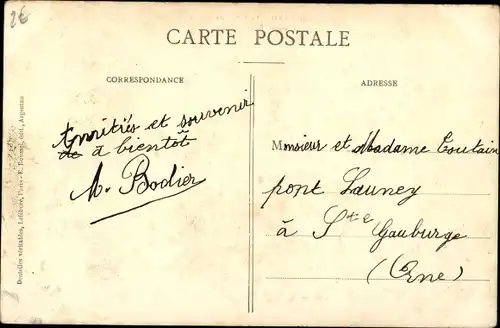 2€
CARTE POSTALE
CORRESPONDANCE
Amitiés et souvenir
de à bientôt
M. Bodier
ADRESSE
Monsieur et Madame Coutain
pont Launey
à Ste Gauburge
(Orne)
Dentelles véritables, Lefébure, Paris - E. édit., Argentan